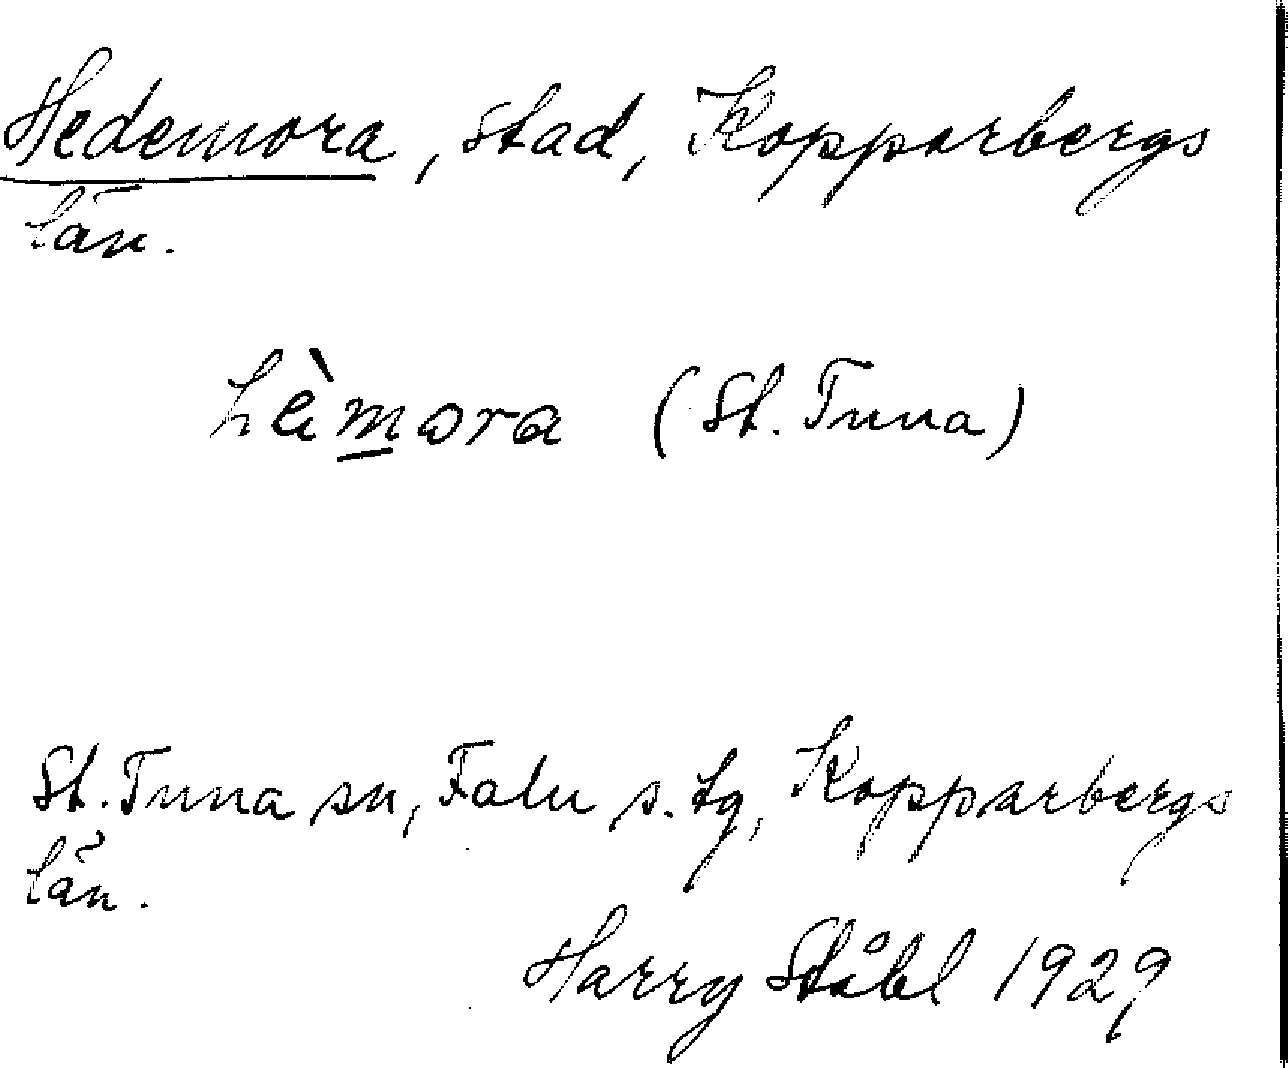 Hedemora, stad, Kopparbergs
län.
hèmora (St. Tuna)
St. Tuna sn, Falu s. tg, Kopparbergs
län.
Harry Ståhl 1929